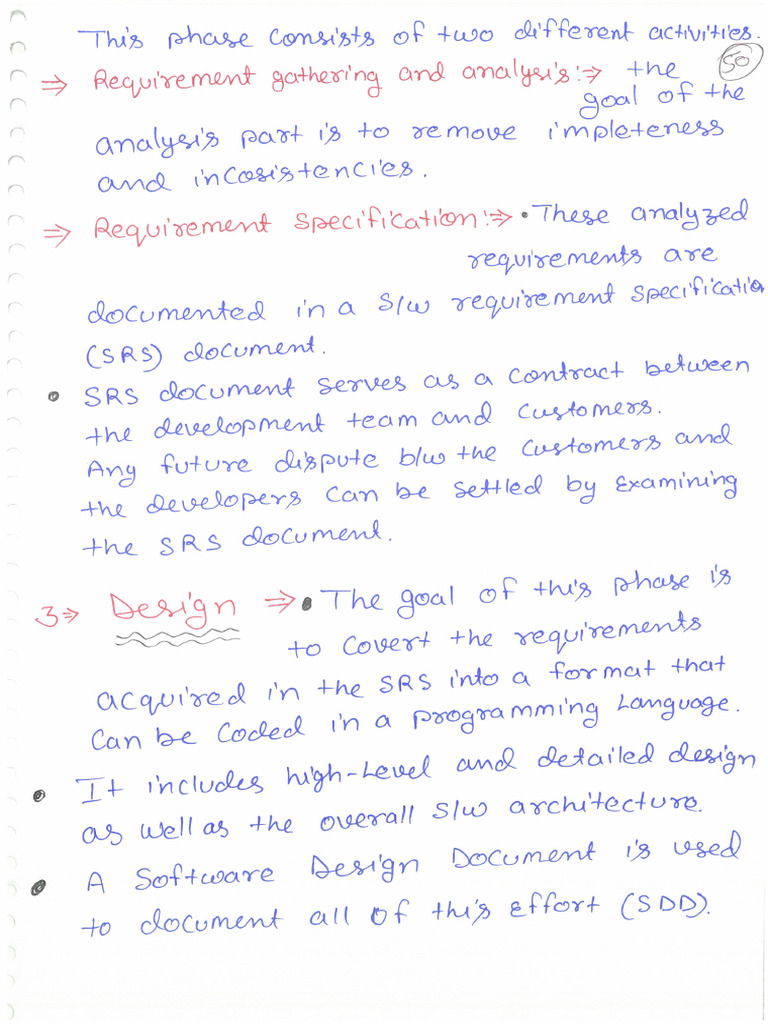 This phase consists of two different activities.
50
⇒ Requirement gathering and analysis:⇒ the
goal of the
analysis part is to remove impleteness
and incosistencies.
⇒ Requirement Specification:⇒ • These analyzed
requirements are
documented in a S/w requirement specification
(SRS) document.
• SRS document serves as a contract between
the development team and customers.
Any future dispute b/w the customers and
the developers can be settled by examining
the SRS document.
3⇒ Design ⇒ • The goal of this phase is
to covert the requirements
acquired in the SRS into a format that
can be coded in a programming Language.
• It includes high-Level and detailed design
as well as the overall S/w architecture.
• A Software Design Document is used
to document all of this effort (SDD).